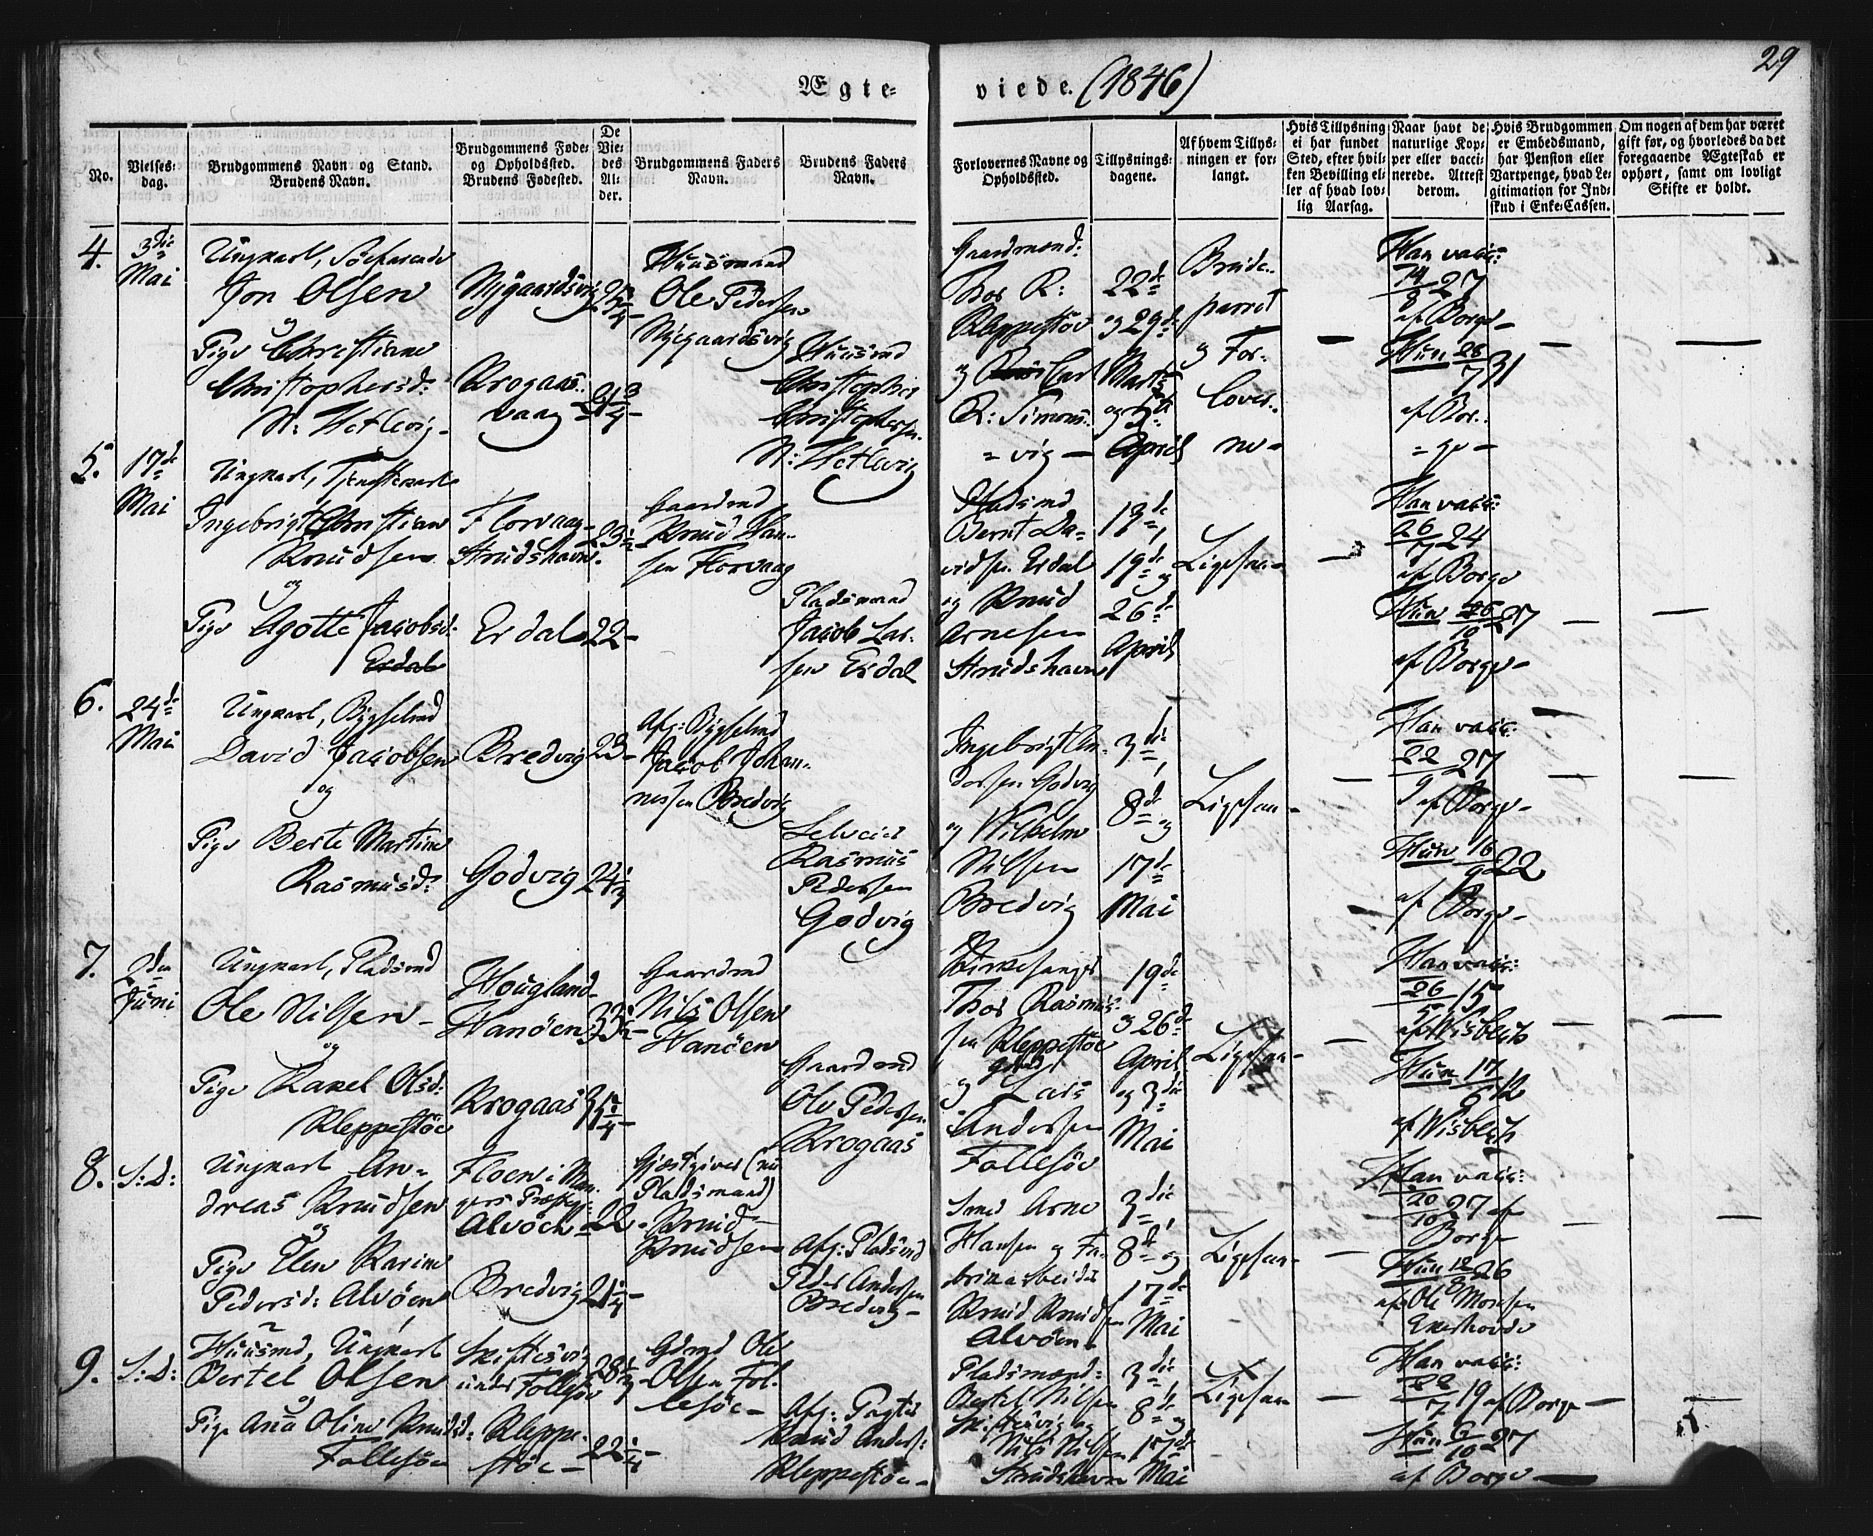 29
Ægte-
viede. (1846)
No.
Vielses-
dag.
Brudgommens Navn og Stand.
Brudens Navn.
Brudgommens Føde-
og Opholdssted.
Brudens Fødested.
De
Vie-
des
Al-
der.
Brudgommens Faders
Navn.
Brudens Faders
Navn.
Forlovernes Navne og
Opholdssted.
Tillysnings-
dagene.
Af hvem Tillys-
ningen er for-
langt.
Hvis Tillysning
ei har fundet
Sted, efter hvil-
ken Bevilling el-
ler af hvad lov-
lig Aarsag.
Naar havt de
naturlige Kop-
per eller vacci-
nerede. Attest
derom.
Hvis Brudgommen
er Embedsmand,
har Pension eller
Vartpenge, hvad Le-
gitimation for Ind-
skud i Enke-Cassen.
Om nogen af dem har været
gift før, og hvorledes da det
foregaaende Ægteskab er
ophørt, samt om lovligt
Skifte er holdt.
4.
3die
Mai
Ungkarl,
Jon Olsen
og
Pige Christiane
Christophersd:
N: Hetlevig
Nygaardsvig
Krogaas-
vaag
Huusmand
Ole Pedersen
Nygaardsvig
Huusmd
Christopher
Christophersen
N: Hetlevig
Gaardmænd:
Thor R:
Kleppestøe
og Carl
R: Simons-
vig
22de
og 29de
Marts
og 5te
April
Brude-
parret
og For-
lover-
ne
Han vacc:
14/8 27
af Borge
Hun 28/7 31
af Bor-
ge
5.
17de
Mai
Ungkarl, Tjenestekarl
Ingebrigt Christian
Knudsen
og
Pige Agotte Jacobsd:
Erdal
Florvaag
Strudshavn
23½
Erdal
22
Gaardmd
Knud Han-
sen Florvaag
Pladsmand
Jacob Lar-
sen Erdal
Pladsmd
Bernt Da-
vidsen Erdal
og Knud
Arnesen
Strudshavn
19de og
26de
April
Ligesaa
Han vacc:
24
af Borge
Hun 27
af Borge
6.
24de
Mai
Ungkarl, Bygselmd
David Jacobsen
og
Pige Berte Martine
Rasmusd:
Bredvig
23
Godvig
24½
Afg: Bygselmd
Jacob Johan-
nessen Bredvig
Selveier
Rasmus
Pedersen
Godvig
Ingebrigt An-
dersen Godvig
og Wilhelm
Nilsen
Bredvig
3die,
8de og
17de
Mai
Ligesaa
Han vacc:
22/9 27
af Borge
Hun 16/9 22
af Borge
7.
2den
Juni
Ungkarl, Pladsmd
Ole Nilsen
og
Pige Rakel Olsd:
Kleppestøe
Hougland
Hanöen
33½
Krogaas
Gaardmd
Nils Olsen
Hanöen
Gaardmd
Ole Pedersen
Krogaas
Kirkesanger
Thor Rasmus-
sen Kleppestøe
og Lars
Andersen
Follesöe
19de
og 26de
April
og 3die
Mai
Ligesaa
Han vacc:
15
af Wisbech
Hun 17/6 12
af Wisbech
8.
S: D:
Ungkarl An-
dreas Knudsen
og
Pige Elen Karine
Pedersd: Alvöen
Floen i Man-
gers Præstegj:
Alvöen
22
Bredvig
21¼
Gjæstgiver (nu
Pladsmand)
Knud
Knudsen
Afg: Pladsmd
Peder Andersen
Bredvig
Smed Arne
Hansen og Fa-
brikarbeider
Knud Knudsen
Alvöen
3die,
8de og
17de
Mai
Ligesaa
Han vacc:
20/10 27 af
Borge
Hun 26
af Ole Monsen
Ekerhovde
9.
S: D:
Huusmd, Ungkarl
Bertel Olsen
og
Pige Ana Oline Knudsd:
Follesöe
Skiftesvig
under Follesöe
28½
Kleppe-
stöe
22¼
Gdmd Ole
Olsen Fol-
lesöe
Afg: Pagter
Knud Anders:
Kleppestöe
Pladsmænd:
Bertel Nilsen
Skiftesvig og
Nils Nilsen
Strudshavn
3die,
8de og
17de
Mai
Ligesaa
Han vacc:
22/7 19 af Borge
Hun 6/10 27
af Borge